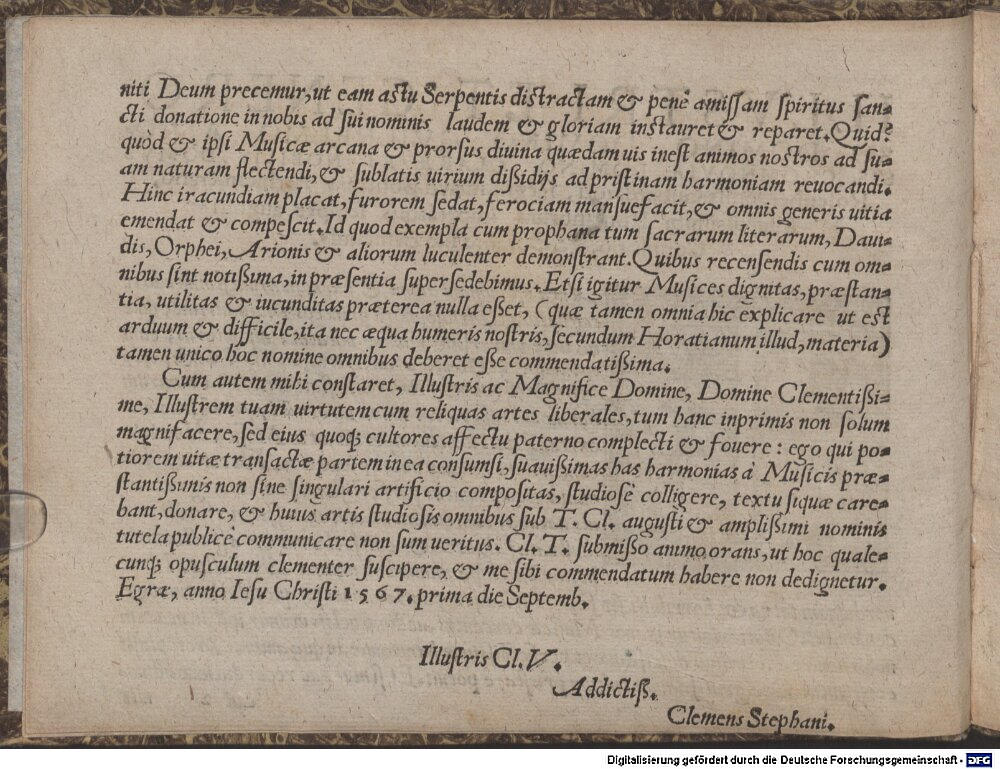 niti Deum precemur, ut eam astu Serpentis distractam & penè amissam spiritus san=
cti donatione in nobis ad sui nominis laudem & gloriam instauret & reparet. Quid?
quòd & ipsi Musicæ arcana & prorsus diuina quædam uis inest animos nostros ad su=
am naturam flectendi, & sublatis uirium dißidijs ad pristinam harmoniam reuocandi.
Hinc iracundiam placat, furorem sedat, ferociam mansuefacit, & omnis generis uitia
emendat & compescit. Id quod exempla cum prophana tum sacrarum literarum, Daui=
dis, Orphei, Arionis & aliorum luculenter demonstrant. Quibus recensendis cum om=
nibus sint notißima, in præsentia supersedebimus. Etsi igitur Musices dignitas, præstan=
tia, utilitas & iucunditas præterea nulla eßet, (quæ tamen omnia hic explicare ut est
arduum & difficile, ita nec æqua humeris nostris, secundum Horatianum illud, materia)
tamen unico hoc nomine omnibus deberet eße commendatißima.
Cum autem mihi constaret, Illustris ac Magnifice Domine, Domine Clementißi=
me, Illustrem tuam uirtutem cum reliquas artes liberales, tum hanc inprimis non solum
magnifacere, sed eius quoq; cultores affectu paterno complecti & fouere: ego qui po=
tiorem uitæ transactæ partem in ea consumsi, suauißimas has harmonias à Musicis præ=
stantißimis non sine singulari artificio compositas, studiosè colligere, textu siquæ care=
bant, donare, & huius artis studiosis omnibus sub T. Cl. augusti & amplißimi nominis
tutela publicè communicare non sum ueritus. Cl. T. submißo animo orans, ut hoc quale=
cunq; opusculum clementer suscipere, & me sibi commendatum habere non dedignetur.
Egræ, anno Iesu Christi 1567. prima die Septemb.
Illustris Cl. V.
Addictiß.
Clemens Stephani.
Digitalisierung gefördert durch die Deutsche Forschungsgemeinschaft - DFG